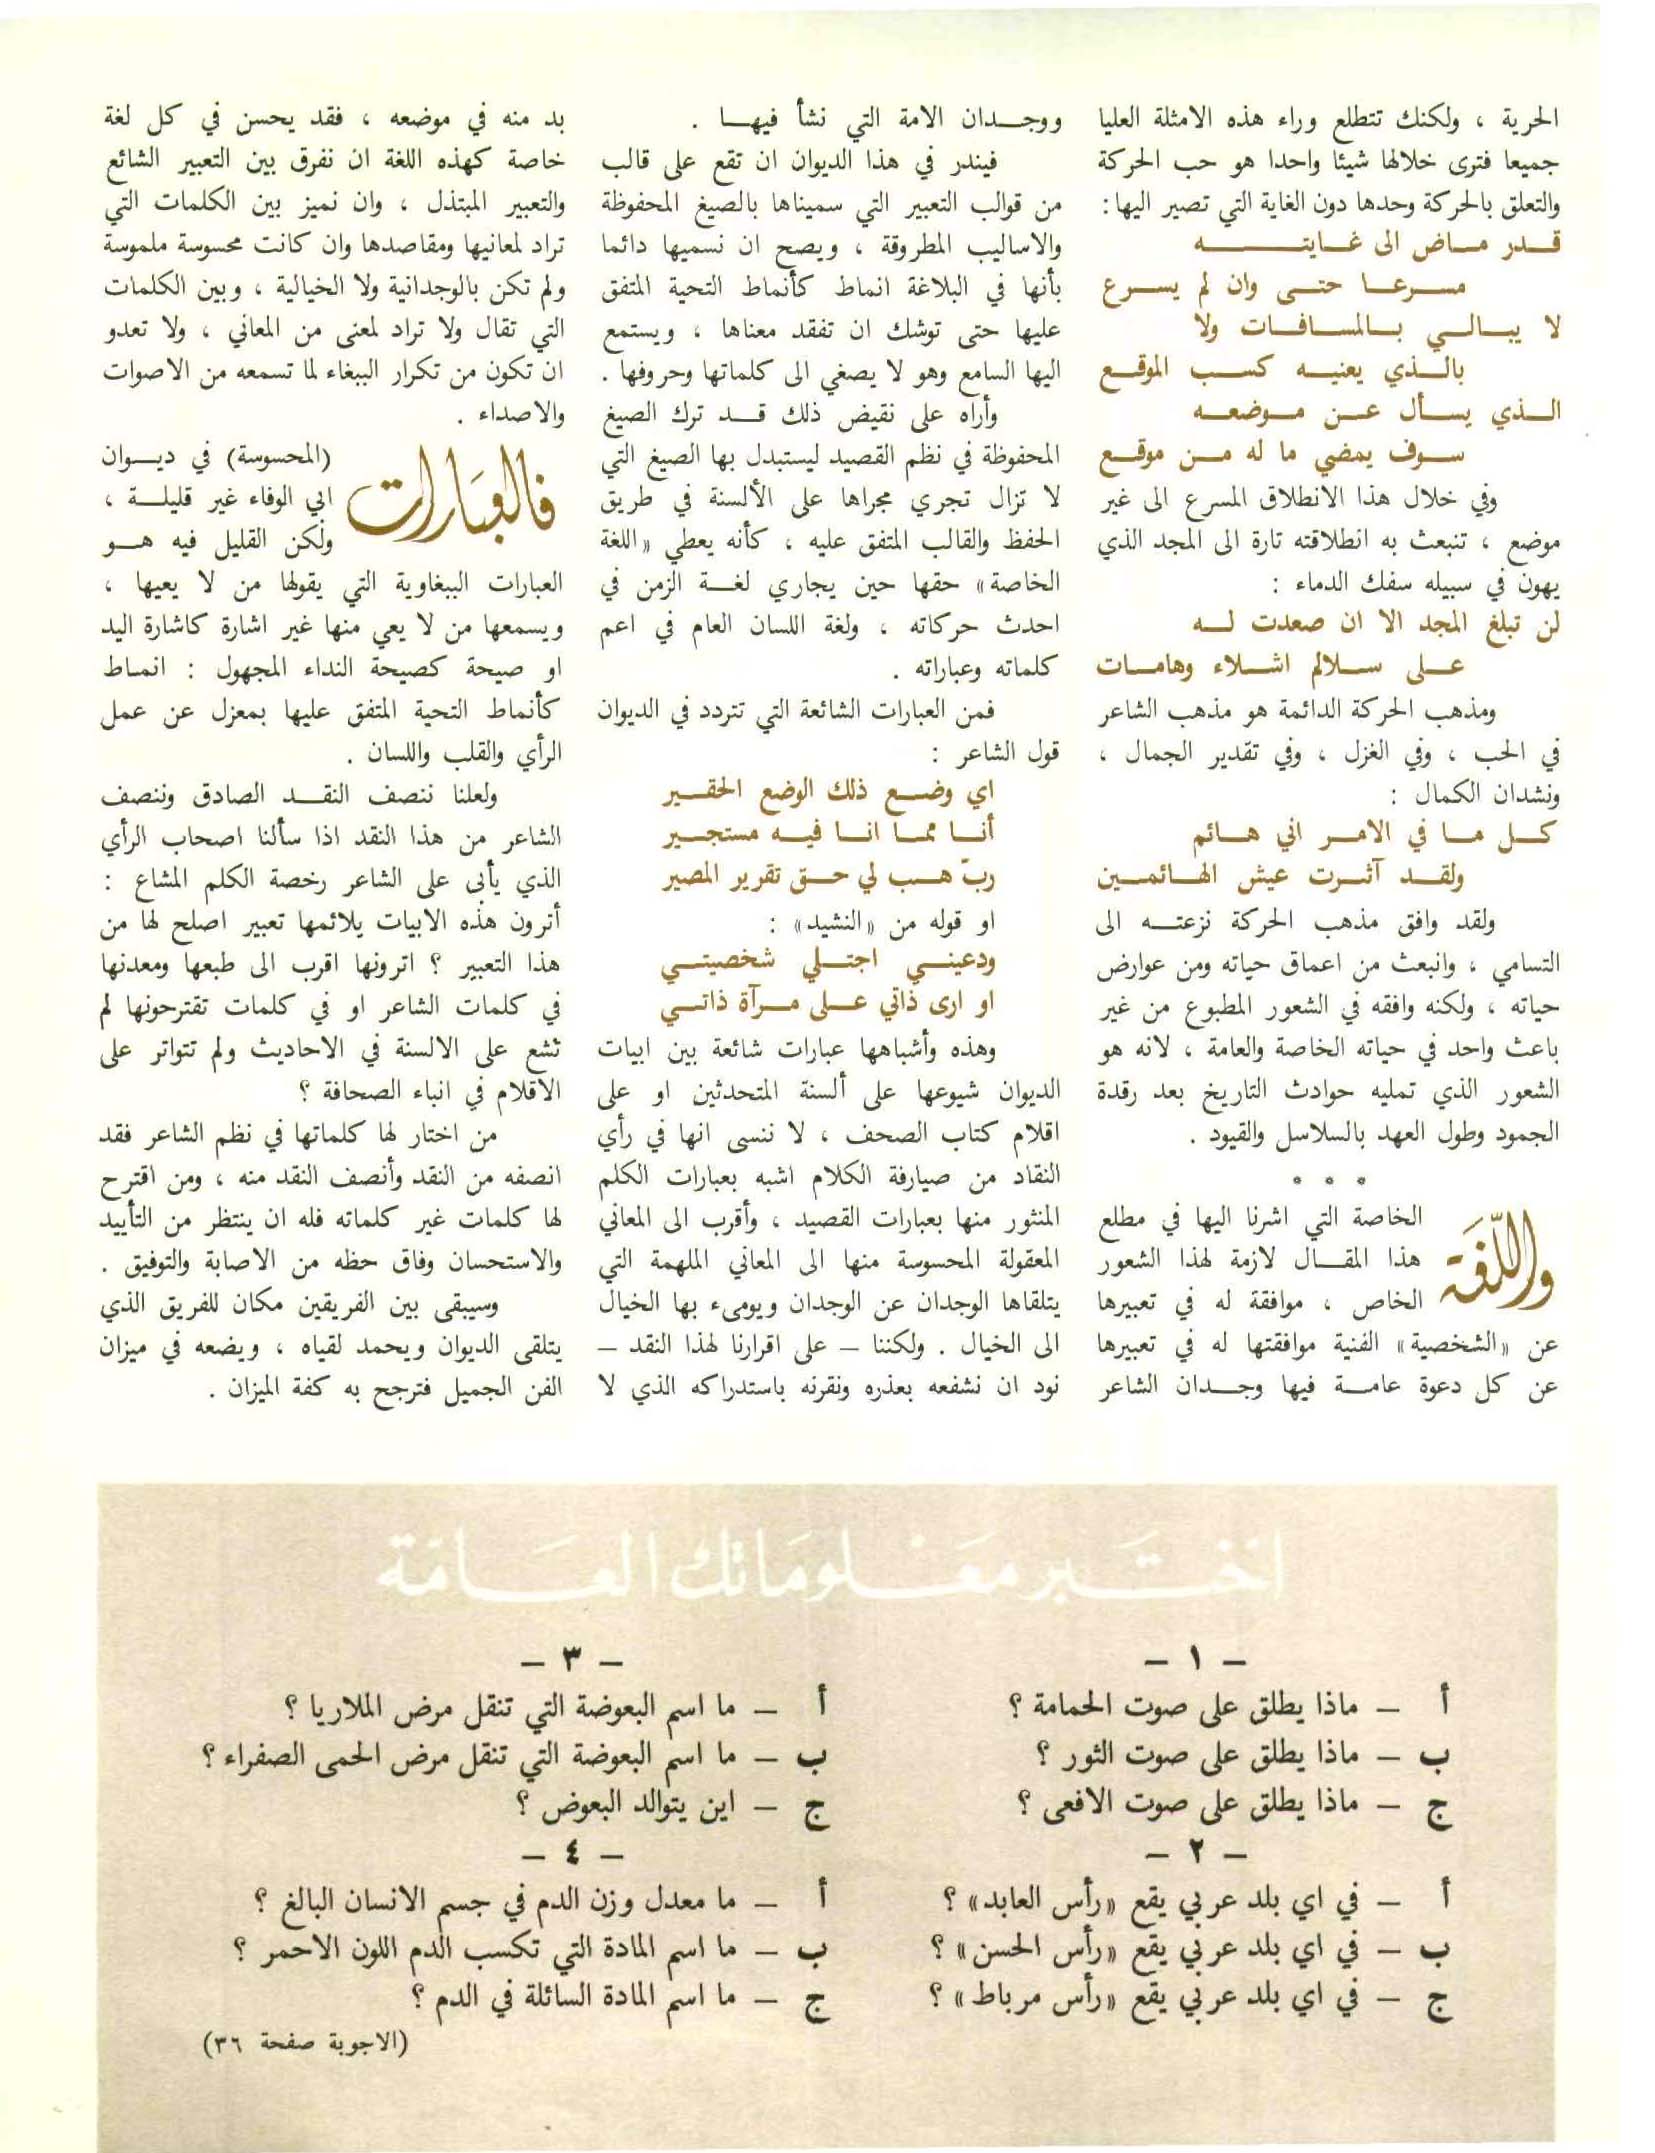 الحرية ، ولكنك تتطلع وراء هذه الامثلة العليا
جميعا فترى خلالها شيئا واحدا هو حب الحركة
والتعلق بالحركة وحدها دون الغاية التي تصير اليها :
قدر ماض الى غايته
مسرعا حتى وان لم يسرع
لا يبالي بالمسافات ولا
بالذي يعنيه كسب الموقع
الذي يسأل عن موضعه
سوف يمضي ما له من موقع
وفي خلال هذا الانطلاق المسرع الى غير
موضع ، تنبعث به انطلاقته تارة الى المجد الذي
يهون في سبيله سفك الدماء :
لن تبلغ المجد الا ان صعدت له
على سلالم اشلاء وهامات
ومذهب الحركة الدائمة هو مذهب الشاعر
في الحب ، وفي الغزل ، وفي تقدير الجمال ،
ونشدان الكمال :
كل ما في الامر اني هائم
ولقد آثرت عيش الهائمين
ولقد وافق مذهب الحركة نزعته الى
التسامي ، وانبعث من اعماق حياته ومن عوارض
حياته ، ولكنه وافقه في الشعور المطبوع من غير
باعث واحد في حياته الخاصة والعامة ، لانه هو
الشعور الذي تمليه حوادث التاريخ بعد رقدة
الجمود وطول العهد بالسلاسل والقيود .
* * *
واللغة الخاصة التي اشرنا اليها في مطلع
هذا المقال لازمة لهذا الشعور
الخاص ، موافقة له في تعبيرها
عن «الشخصية» الفنية موافقتها له في تعبيرها
عن كل دعوة عامة فيها وجدان الشاعر
ووجدان الامة التي نشأ فيها .
فيندر في هذا الديوان ان تقع على قالب
من قوالب التعبير التي سميناها بالصيغ المحفوظة
والاساليب المطروقة ، ويصح ان نسميها دائما
بأنها في البلاغة انماط كأنماط التحية المتفق
عليها حتى توشك ان تفقد معناها ، ويستمع
اليها السامع وهو لا يصغي الى كلماتها وحروفها .
وأراه على نقيض ذلك قد ترك الصيغ
المحفوظة في نظم القصيد ليستبدل بها الصيغ التي
لا تزال تجري مجراها على الألسنة في طريق
الحفظ والقالب المتفق عليه ، كأنه يعطي «اللغة
الخاصة» حقها حين يجاري لغة الزمن في
احدث حركاته ، ولغة اللسان العام في اعم
كلماته وعباراته .
فمن العبارات الشائعة التي تتردد في الديوان
قول الشاعر :
اي وضع ذلك الوضع الحقير
أنا مما انا فيه مستجير
ربّ هب لي حق تقرير المصير
او قوله من «النشيد» :
ودعيني اجتلي شخصيتي
او ارى ذاتي على مرآة ذاتي
وهذه وأشباهها عبارات شائعة بين ابيات
الديوان شيوعها على ألسنة المتحدثين او على
اقلام كتاب الصحف ، لا ننسى انها في رأي
النقاد من صيارفة الكلام اشبه بعبارات الكلم
المنثور منها بعبارات القصيد ، وأقرب الى المعاني
المعقولة المحسوسة منها الى المعاني الملهمة التي
يتلقاها الوجدان عن الوجدان ويومىء بها الخيال
الى الخيال . ولكننا — على اقرارنا لهذا النقد —
نود ان نشفعه بعذره ونقرنه باستدراكه الذي لا
بد منه في موضعه ، فقد يحسن في كل لغة
خاصة كهذه اللغة ان نفرق بين التعبير الشائع
والتعبير المبتذل ، وان نميز بين الكلمات التي
تراد لمعانيها ومقاصدها وان كانت محسوسة ملموسة
ولم تكن بالوجدانية ولا الخيالية ، وبين الكلمات
التي تقال ولا تراد لمعنى من المعاني ، ولا تعدو
ان تكون من تكرار الببغاء لما تسمعه من الاصوات
والاصداء .
فالعبارات (المحسوسة) في ديوان
ابي الوفاء غير قليلة ،
ولكن القليل فيه هو
العبارات الببغاوية التي يقولها من لا يعيها ،
ويسمعها من لا يعي منها غير اشارة كاشارة اليد
او صيحة كصيحة النداء المجهول : انماط
كأنماط التحية المتفق عليها بمعزل عن عمل
الرأي والقلب واللسان .
ولعلنا ننصف النقد الصادق وننصف
الشاعر من هذا النقد اذا سألنا اصحاب الرأي
الذي يأبى على الشاعر رخصة الكلم المشاع :
أترون هذه الابيات يلائمها تعبير اصلح لها من
هذا التعبير ؟ اترونها اقرب الى طبعها ومعدنها
في كلمات الشاعر او في كلمات تقترحونها لم
تشع على الالسنة في الاحاديث ولم تتواتر على
الاقلام في انباء الصحافة ؟
من اختار لها كلماتها في نظم الشاعر فقد
انصفه من النقد وأنصف النقد منه ، ومن اقترح
لها كلمات غير كلماته فله ان ينتظر من التأييد
والاستحسان وفاق حظه من الاصابة والتوفيق .
وسيبقى بين الفريقين مكان للفريق الذي
يتلقى الديوان ويحمد لقياه ، ويضعه في ميزان
الفن الجميل فترجح به كفة الميزان .
اختبر معلوماتك العامة
— ١ —
أ — ماذا يطلق على صوت الحمامة ؟
ب — ماذا يطلق على صوت الثور ؟
ج — ماذا يطلق على صوت الافعى ؟
— ٢ —
أ — في اي بلد عربي يقع «رأس العابد» ؟
ب — في اي بلد عربي يقع «رأس الحسن» ؟
ج — في اي بلد عربي يقع «رأس مرباط» ؟
— ٣ —
أ — ما اسم البعوضة التي تنقل مرض الملاريا ؟
ب — ما اسم البعوضة التي تنقل مرض الحمى الصفراء ؟
ج — اين يتوالد البعوض ؟
— ٤ —
أ — ما معدل وزن الدم في جسم الانسان البالغ ؟
ب — ما اسم المادة التي تكسب الدم اللون الاحمر ؟
ج — ما اسم المادة السائلة في الدم ؟
(الاجوبة صفحة ٣٦)